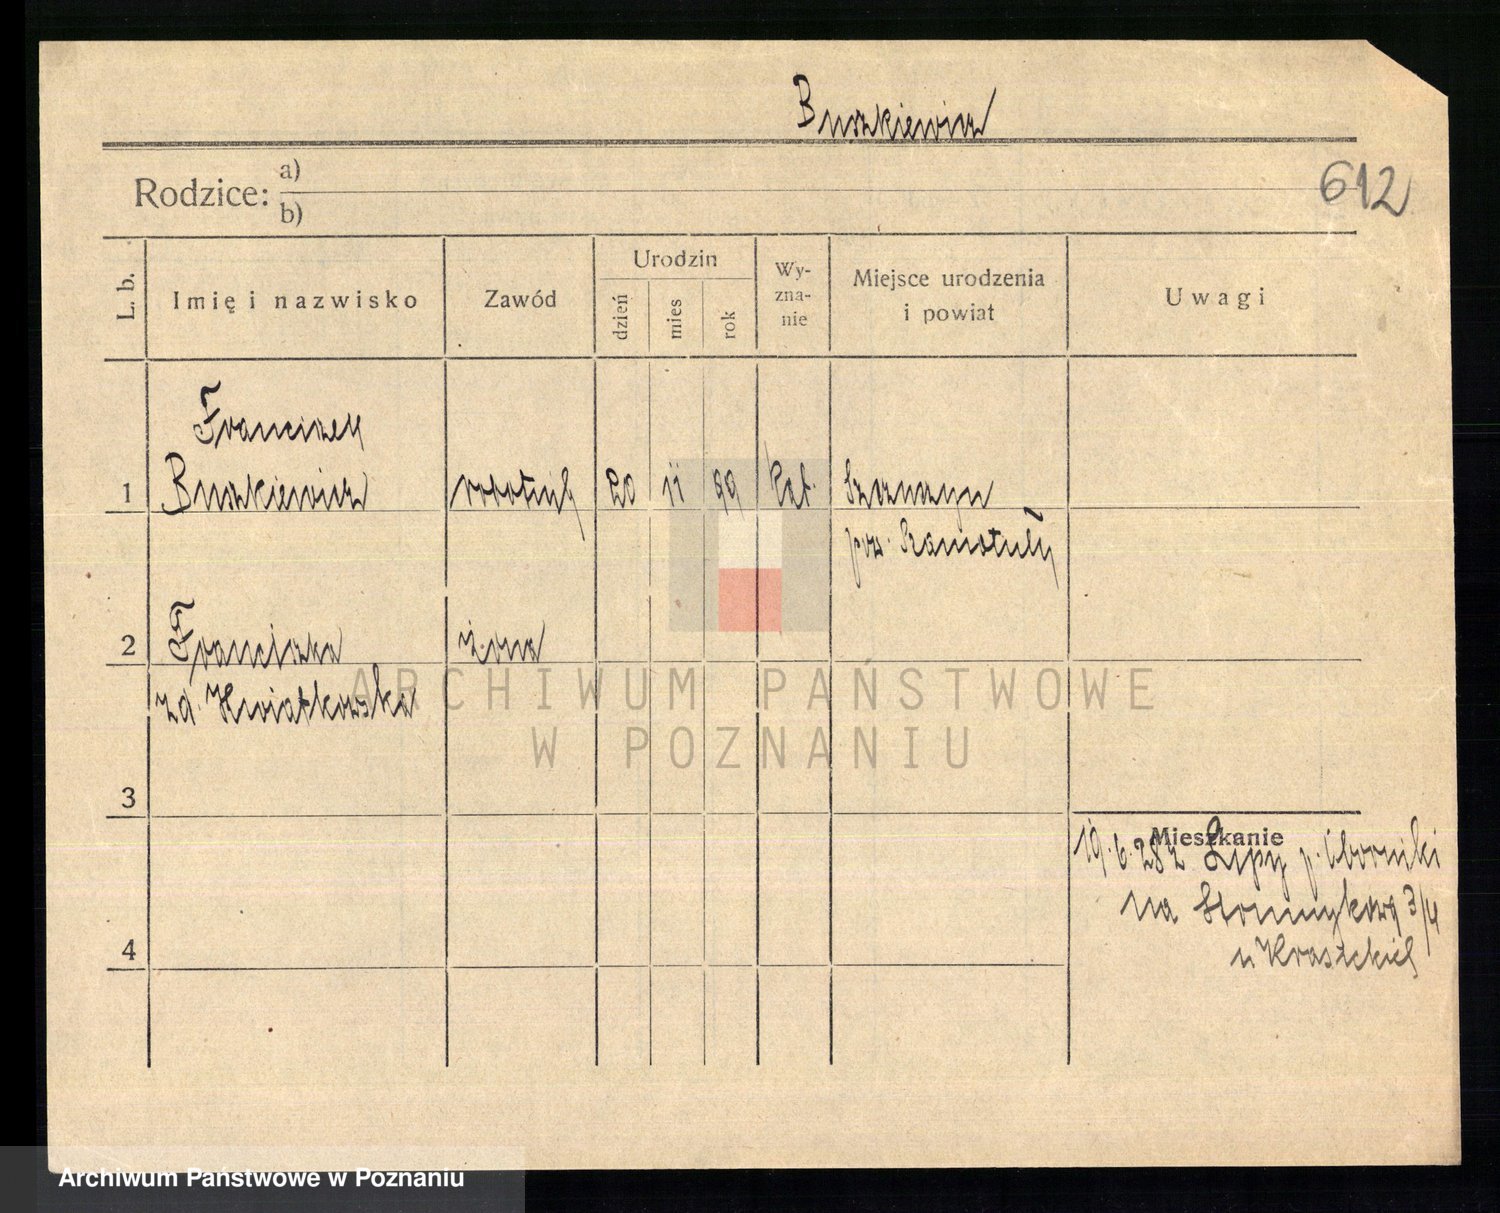 Buszkiewicz
Rodzice: a)
b)
612
L. b.
Imię i nazwisko
Zawód
Urodzin
dzień
mies
rok
Wy-
zna-
nie
Miejsce urodzenia
i powiat
Uwagi
Franciszek
1 Buszkiewicz robotnik 20 11 99 kat.
pow. Szamotuły
2 Franciszka żona
zd. Kwiatkowska
3
Mieszkanie
19.6.28 z Lipy p. Oborniki
na 3/4
u
4
ARCHIWUM PAŃSTWOWE
W POZNANIU
Archiwum Państwowe w Poznaniu